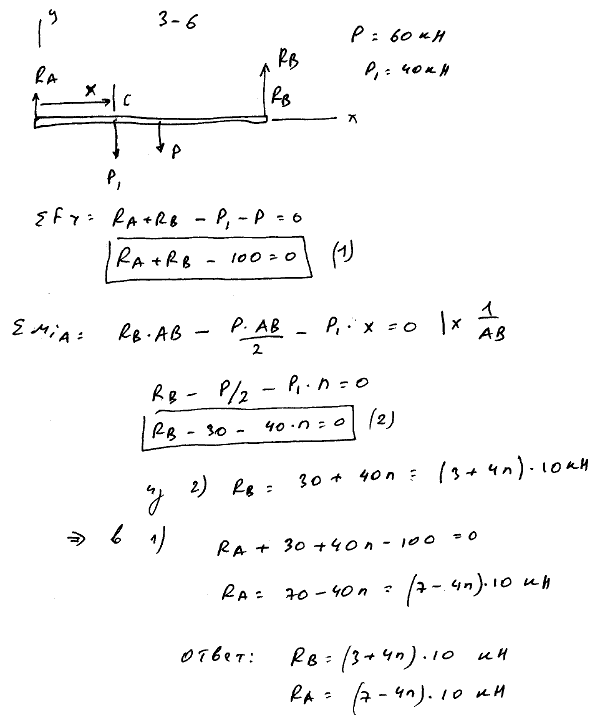 y
3-6
P = 60 кН
P₁ = 40 кН
RA
x
C
RB
RB
x
P₁
P
ΣFy = RA + RB - P₁ - P = 0
RA + RB - 100 = 0 (1)
ΣMiA = RB · AB - P·AB/2 - P₁ · x = 0 | x 1/AB
RB - P/2 - P₁ · n = 0
RB - 30 - 40·n = 0 (2)
из 2) RB = 30 + 40n = (3 + 4n) · 10 кН
⇒ в 1) RA + 30 + 40n - 100 = 0
RA = 70 - 40n = (7 - 4n)·10 кН
Ответ: RB = (3 + 4n) · 10 кН
RA = (7 - 4n) · 10 кН